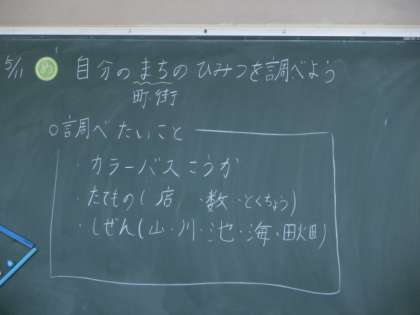 5/11 め 自分のまちのひみつを調べよう
町・街
○調べたいこと
・カラーバスこうか
・たてもの(店 ・数・とくちょう)
・しぜん(山・川・池・海・田畑)